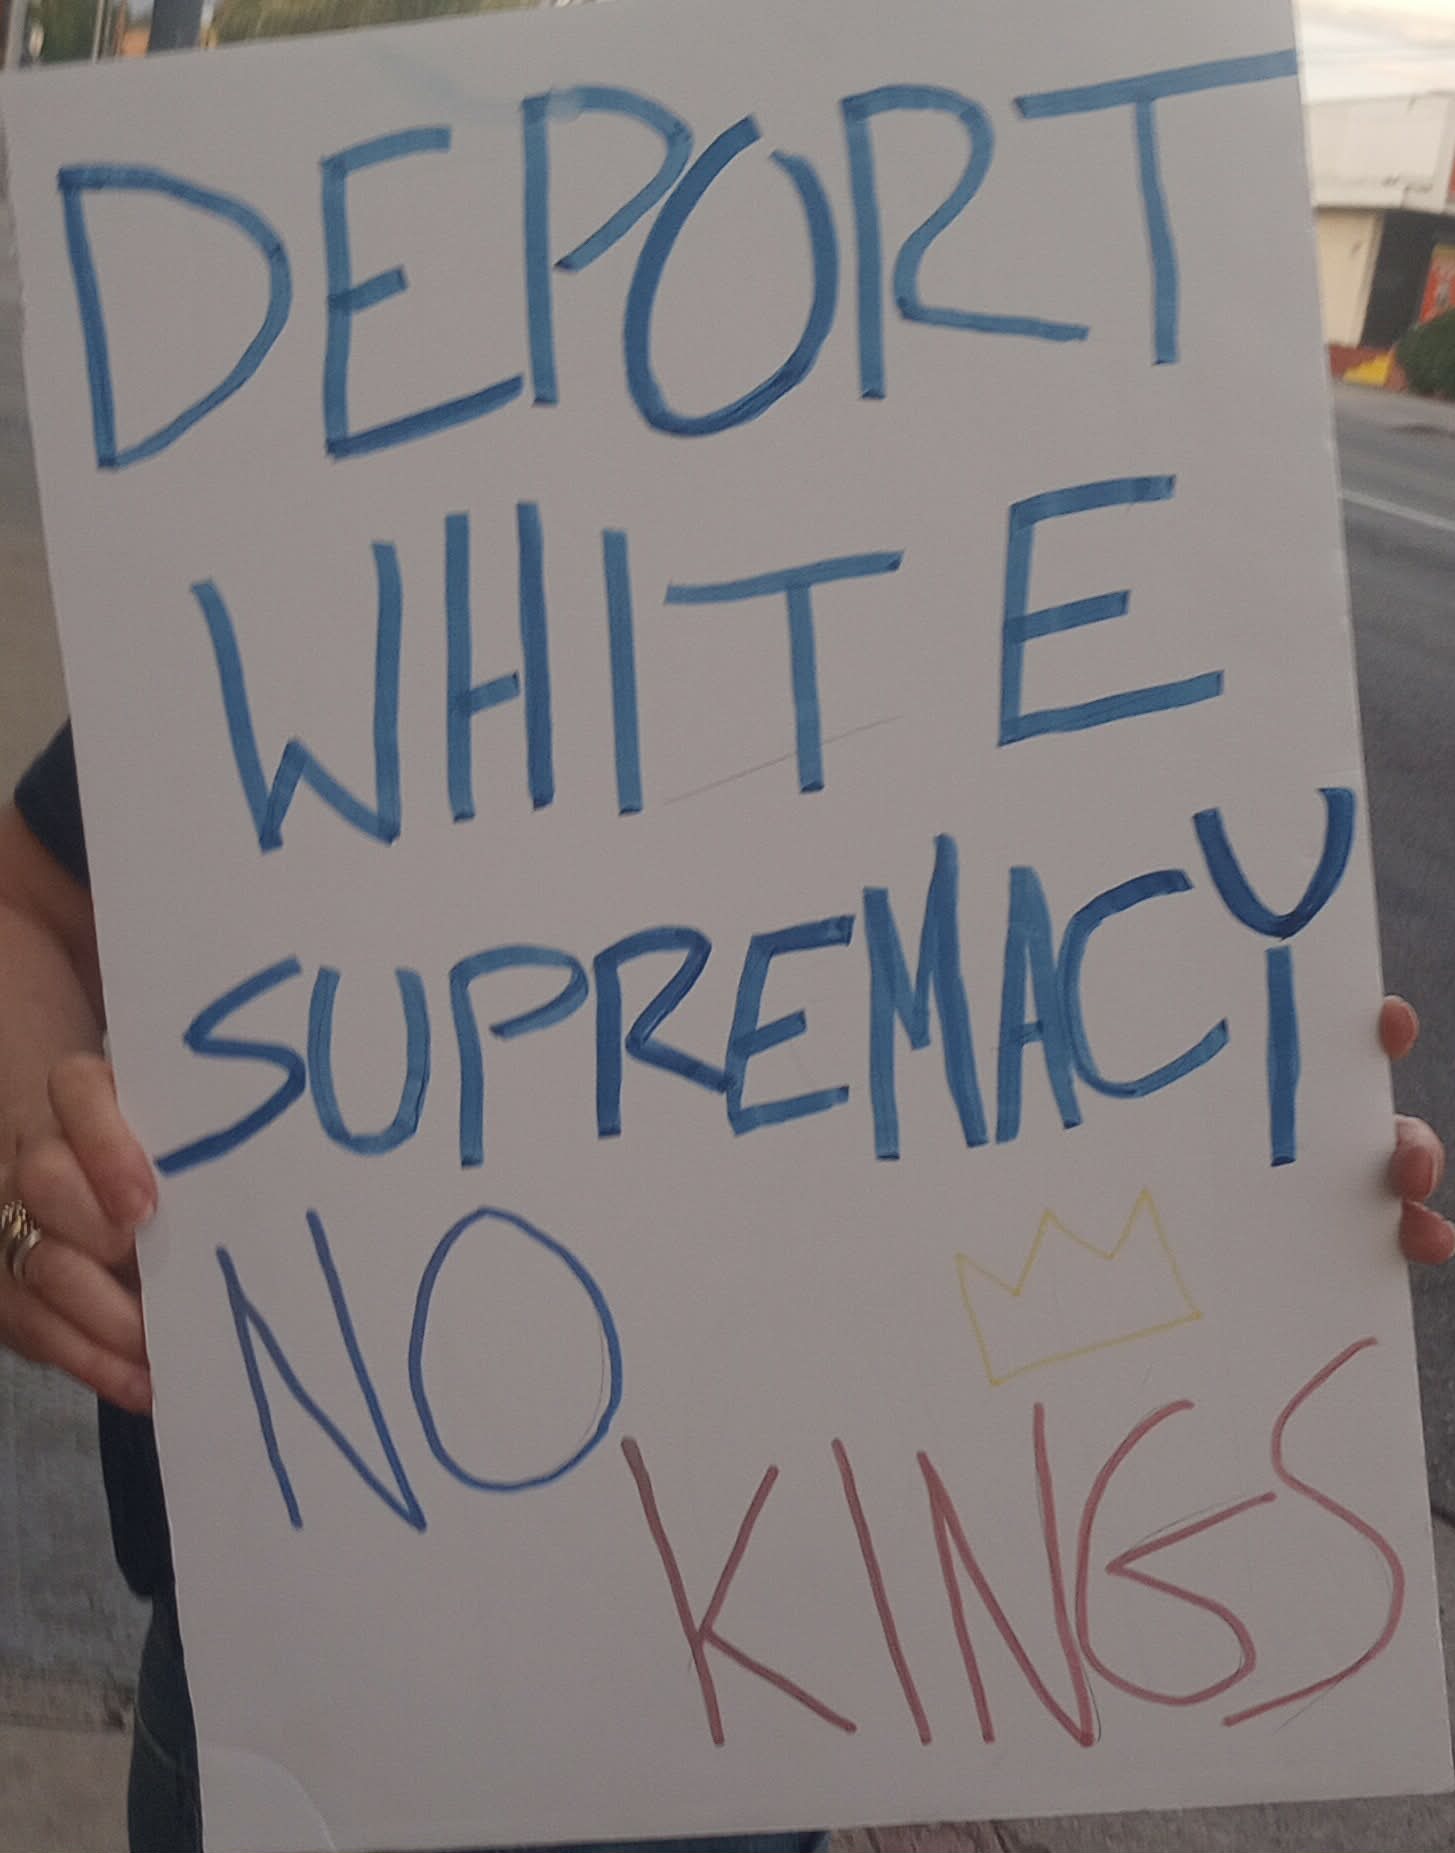 DEPORT
WHITE
SUPREMACY
NO
KINGS